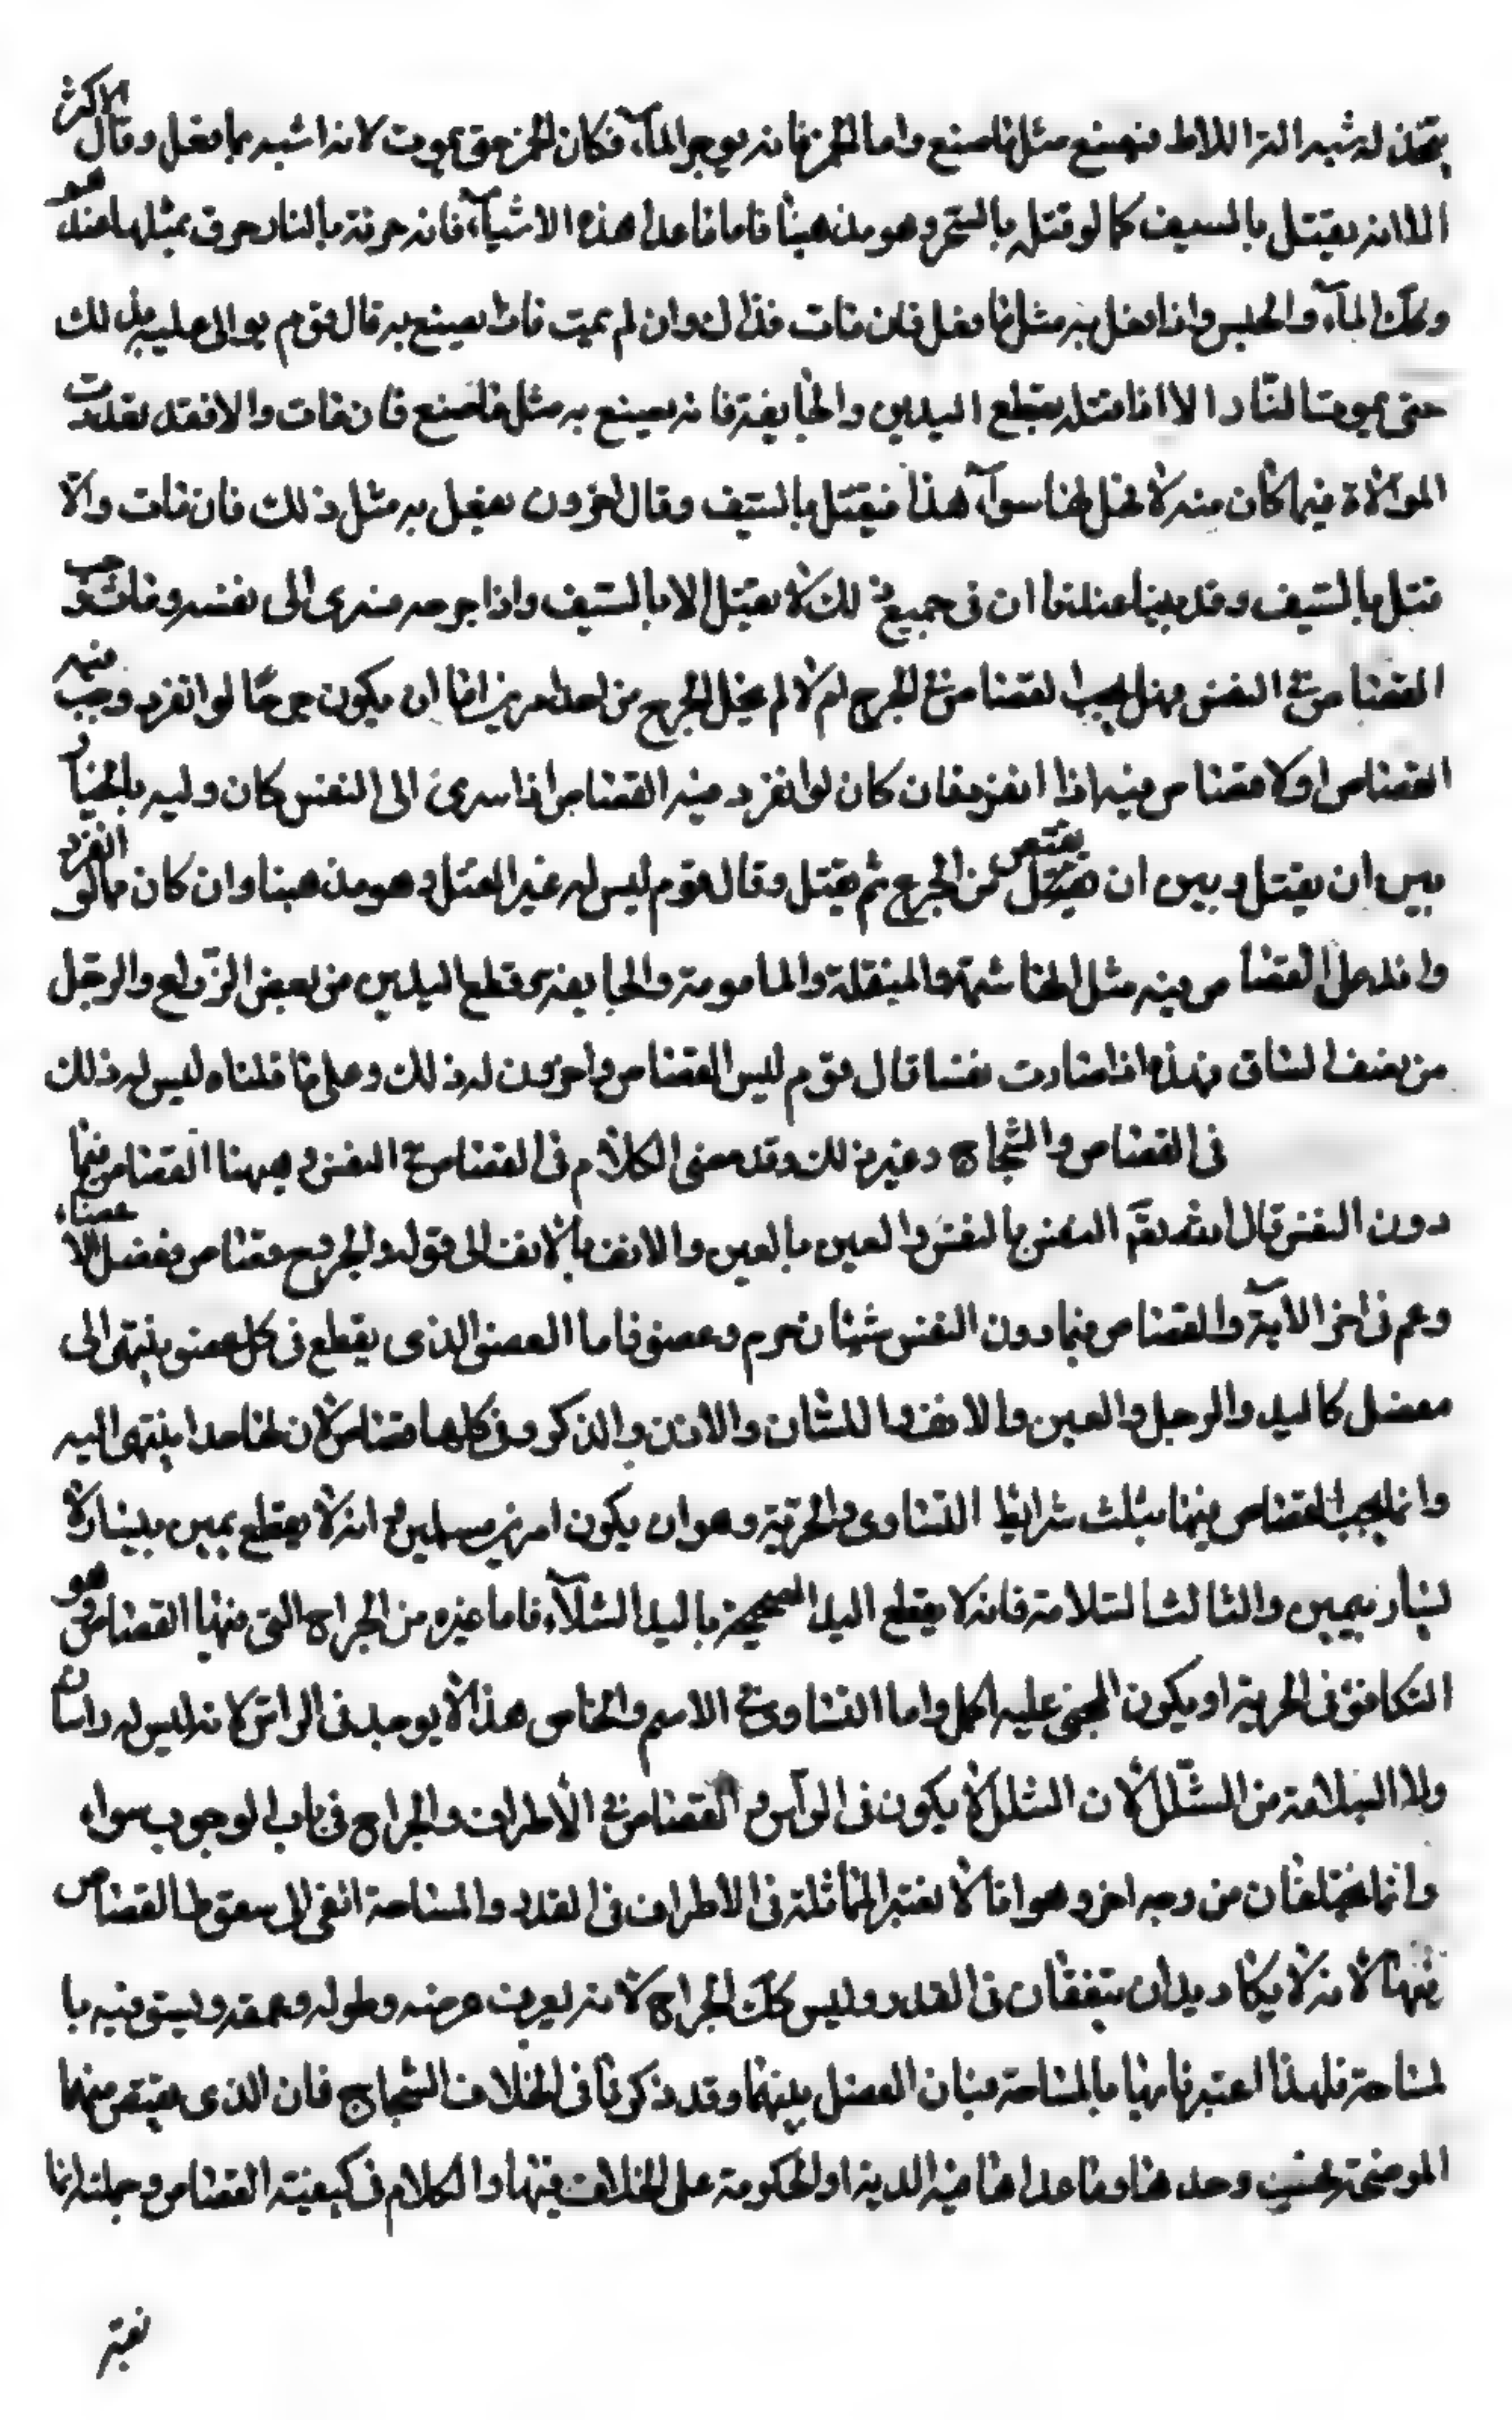 يتخذ له شبه الة اللاط فيصنع مثل ما صنع واما الخمر فانه يوجر الماء فكان الخمر حتى يموت لانه اشبه بما فعل وقال الاكثر
الا انه يقتل بالسيف كما لو قتل بالسحر وهو مذهبنا فاما ما عدا هذه الاشياء فانه حرقه بالنار حرق بمثلها عنده
وكك الماء والحبس واذا فعل به مثل ما فعل فان مات فذاك وان لم يمت فاذا يصنع به قال قوم يوالى عليه بذلك
حتى يموت النار الا اذا قتله بقطع اليدين والجايفة فانه يصنع به مثل ما صنع فان مات والا فقد تعذرت
الموالاة فيما كان منه لا نخل لهنا سواء هذا فيقتل بالسيف وقال اخرون يفعل به مثل ذلك فان مات والا
قتل بالسيف وقد بينا عندنا ان فى جميع ذلك لا يقتل الا بالسيف واذا جرحه فسرى الى نفسه ومات وجب
القصاص فى النفس وهل يجب القصاص فى الجرح ام لا لم يخل الجرح من احد امرين اما ان يكون جرحا لو انفرد وجب فيه
القصاص او لا قصاص فيه اذا انفرد فان كان لو انفرد فيه القصاص اذا سرى الى النفس كان وليه بالخيار
بين ان يقتل وبين ان يقتص من الجرح ثم يقتل وقال قوم ليس له غير القتل وهو مذهبنا وان كان مما لو انفرد
واندمل القصاص فيه مثل الهاشمة والمنقلة والمامومة والجايفة وقطع اليدين من بعض الذراع والرجل
من نصف الساق فهذه اذا صارت نفسا قال قوم ليس القصاص واخرون له ذلك وعلى ما قلناه ليس له ذلك
فى القصاص والشجاج وغير ذلك وقد مضى الكلام فى القصاص فى النفس وهيهنا القصاص فيما
دون النفس قال الله تعم النفس بالنفس والعين بالعين والانف بالانف الى قوله والجروح قصاص ففصل الاعضاء
وعم فى اخر الاية والقصاص فيما دون النفس شيئان جرم وعضو فاما العضو الذى يقطع فى كل عضو ينتهى الى
مفصل كاليد والرجل والعين والانف واللسان والاذن والذكر وفى كلها قصاص لان لها حدا ينتهى اليه
وانما يجب القصاص فيها بثلث شرايط التساوى والحرية وهو ان يكون امرين مسلمين مع انه لا يقطع يمين بيسار ولا
يسار بيمين والثالث السلامة فانه لا يقطع اليد الصحيحة باليد الشلاء فاما غيره من الجراح التى فيها القصاص وهو
التكافئ فى الحرية او يكون المجنى عليه اكمل واما التساوى فى الاسم والخاص هذا لا يوجد فى الراس لانه ليس له راسان
ولا السلامة من الشلل لان الشلل لا يكون فى الراس والقصاص فى الاطراف والجراح فى باب الوجوب سواء
وانما يختلفان من وجه اخر وهو انا لا نعتبر المماثلة فى الاطراف فى القدر والمساحة افضى الى سقوط القصاص
فيها لانه لا يكاد يدان يتفقان فى القدر وليس كك الجراح لانه يعرف عرضه وطوله وعمقه ويستوفيه با
لمساحة فلهذا اعتبرناها بالمساحة فبان الفصل بينهما وقد ذكرنا فى الخلاف الشجاج فان الذى يقتص منها
الموضحة فحسب وحدها وما عداها فيه الدية او الحكومة على الخلاف فيها والكلام فى كيفية القصاص وجملته انا
نعتبر